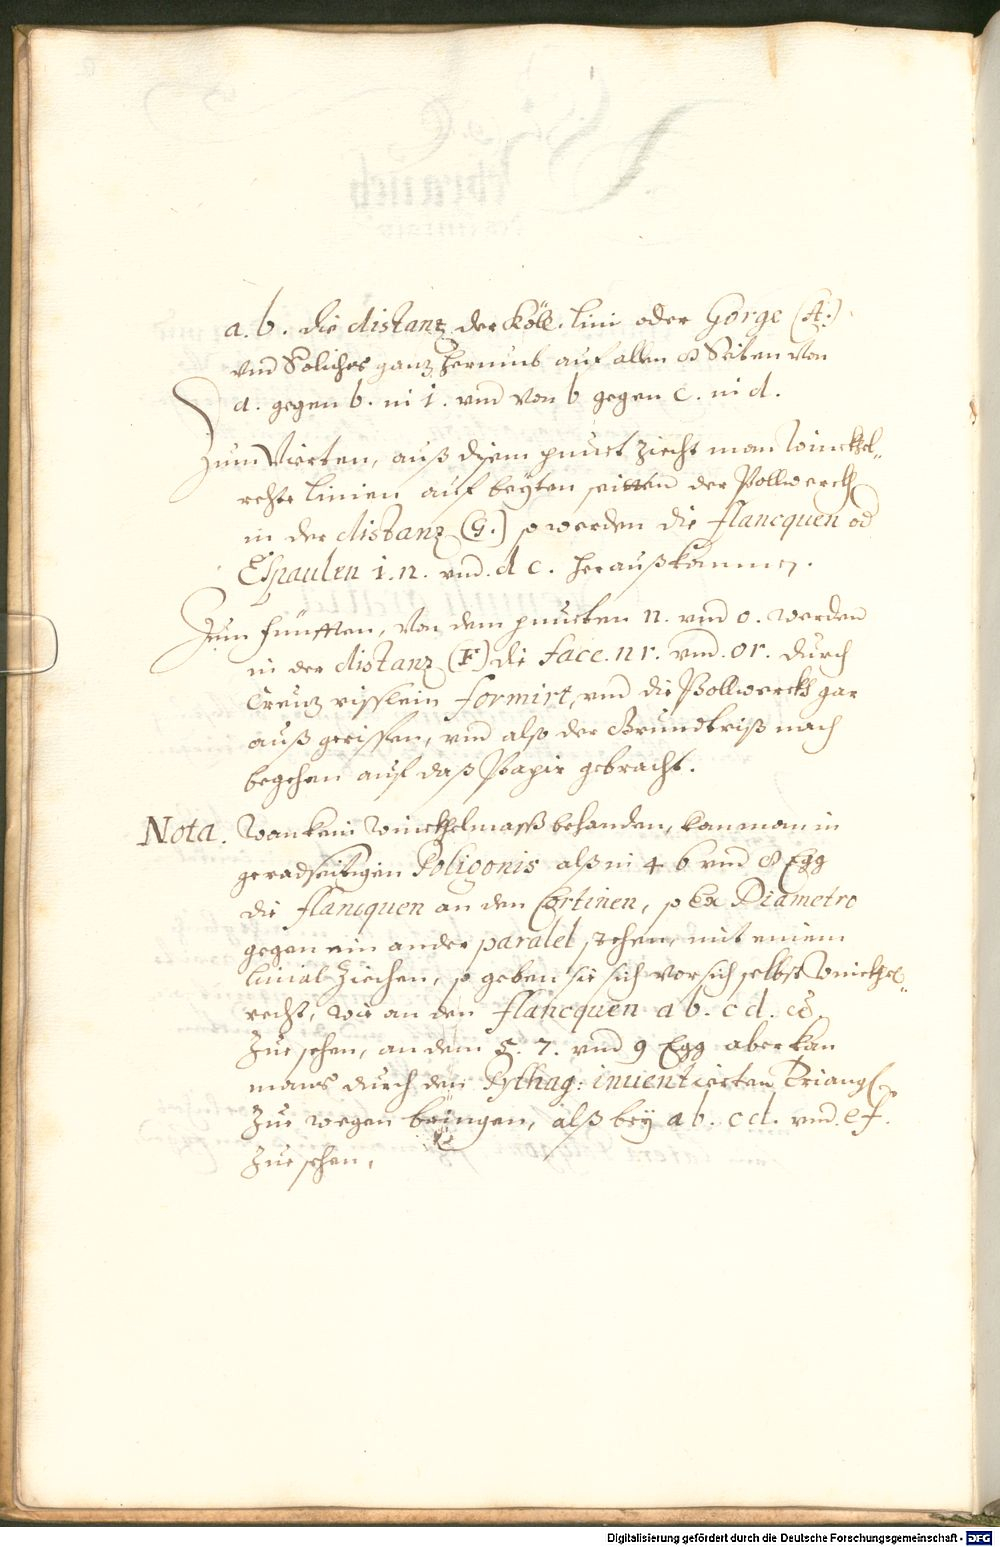 a. b. die distanz der Köll. lini oder Gorge (A.)
vnd Solches ganz herumb auf allen 8 Seiten von
a. gegen b. in i. vnd von b gegen c. in d.
Zum Vierten, auß disem punct ziecht man winckhel„
rechte linien auf beyten seitten der Pollwerckh
in der distanz (G.) so werden die flancquen od
Espaulen i. n. vnd. d c. herauß kommen.
Zum fünfften, von dem puncten n. vnd o. werden
in der distanz (F) die face. n r. vnd. o r. durch
Creuz risslein formirt, vnd die Pollwerckh gar
auß gerissen, vnd also der Grundtriß nach
begehen auf daß Papir gebracht.
Nota. Wan kein winckhelmaß behanden, kan man in
geradseitigen Poligonis alß in 4 6 vnd 8 Egg
die flancquen an den Cortinen, so Ex Diametro
gegen ein ander paralel stehen, mit einem
linial ziechen, so geben sie sich vor sich selbst winckhel„
recht, wie an den flancquen a b. c d.
zue sehen, an dem 5. 7. vnd 9 Egg aber kan
mans durch den Pythag: inuentierten Triangl
zue wegen bringen, alß bey a b. c d. vnd. e f.
zue sehen,
Digitalisierung gefördert durch die Deutsche Forschungsgemeinschaft - DFG